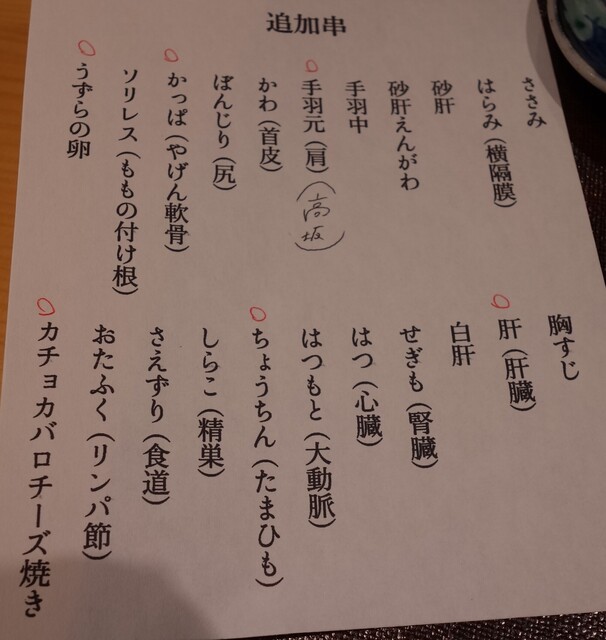 追加串
ささみ
はらみ（横隔膜）
砂肝
砂肝えんがわ
手羽中
手羽元（肩）（高坂）
かわ（首皮）
ぼんじり（尻）
かっぱ（やげん軟骨）
ソリレス（ももの付け根）
うずらの卵
胸すじ
肝（肝臓）
白肝
せぎも（腎臓）
はつ（心臓）
はつもと（大動脈）
ちょうちん（たまひも）
しらこ（精巣）
さえずり（食道）
おたふく（リンパ節）
カチョカバロチーズ焼き